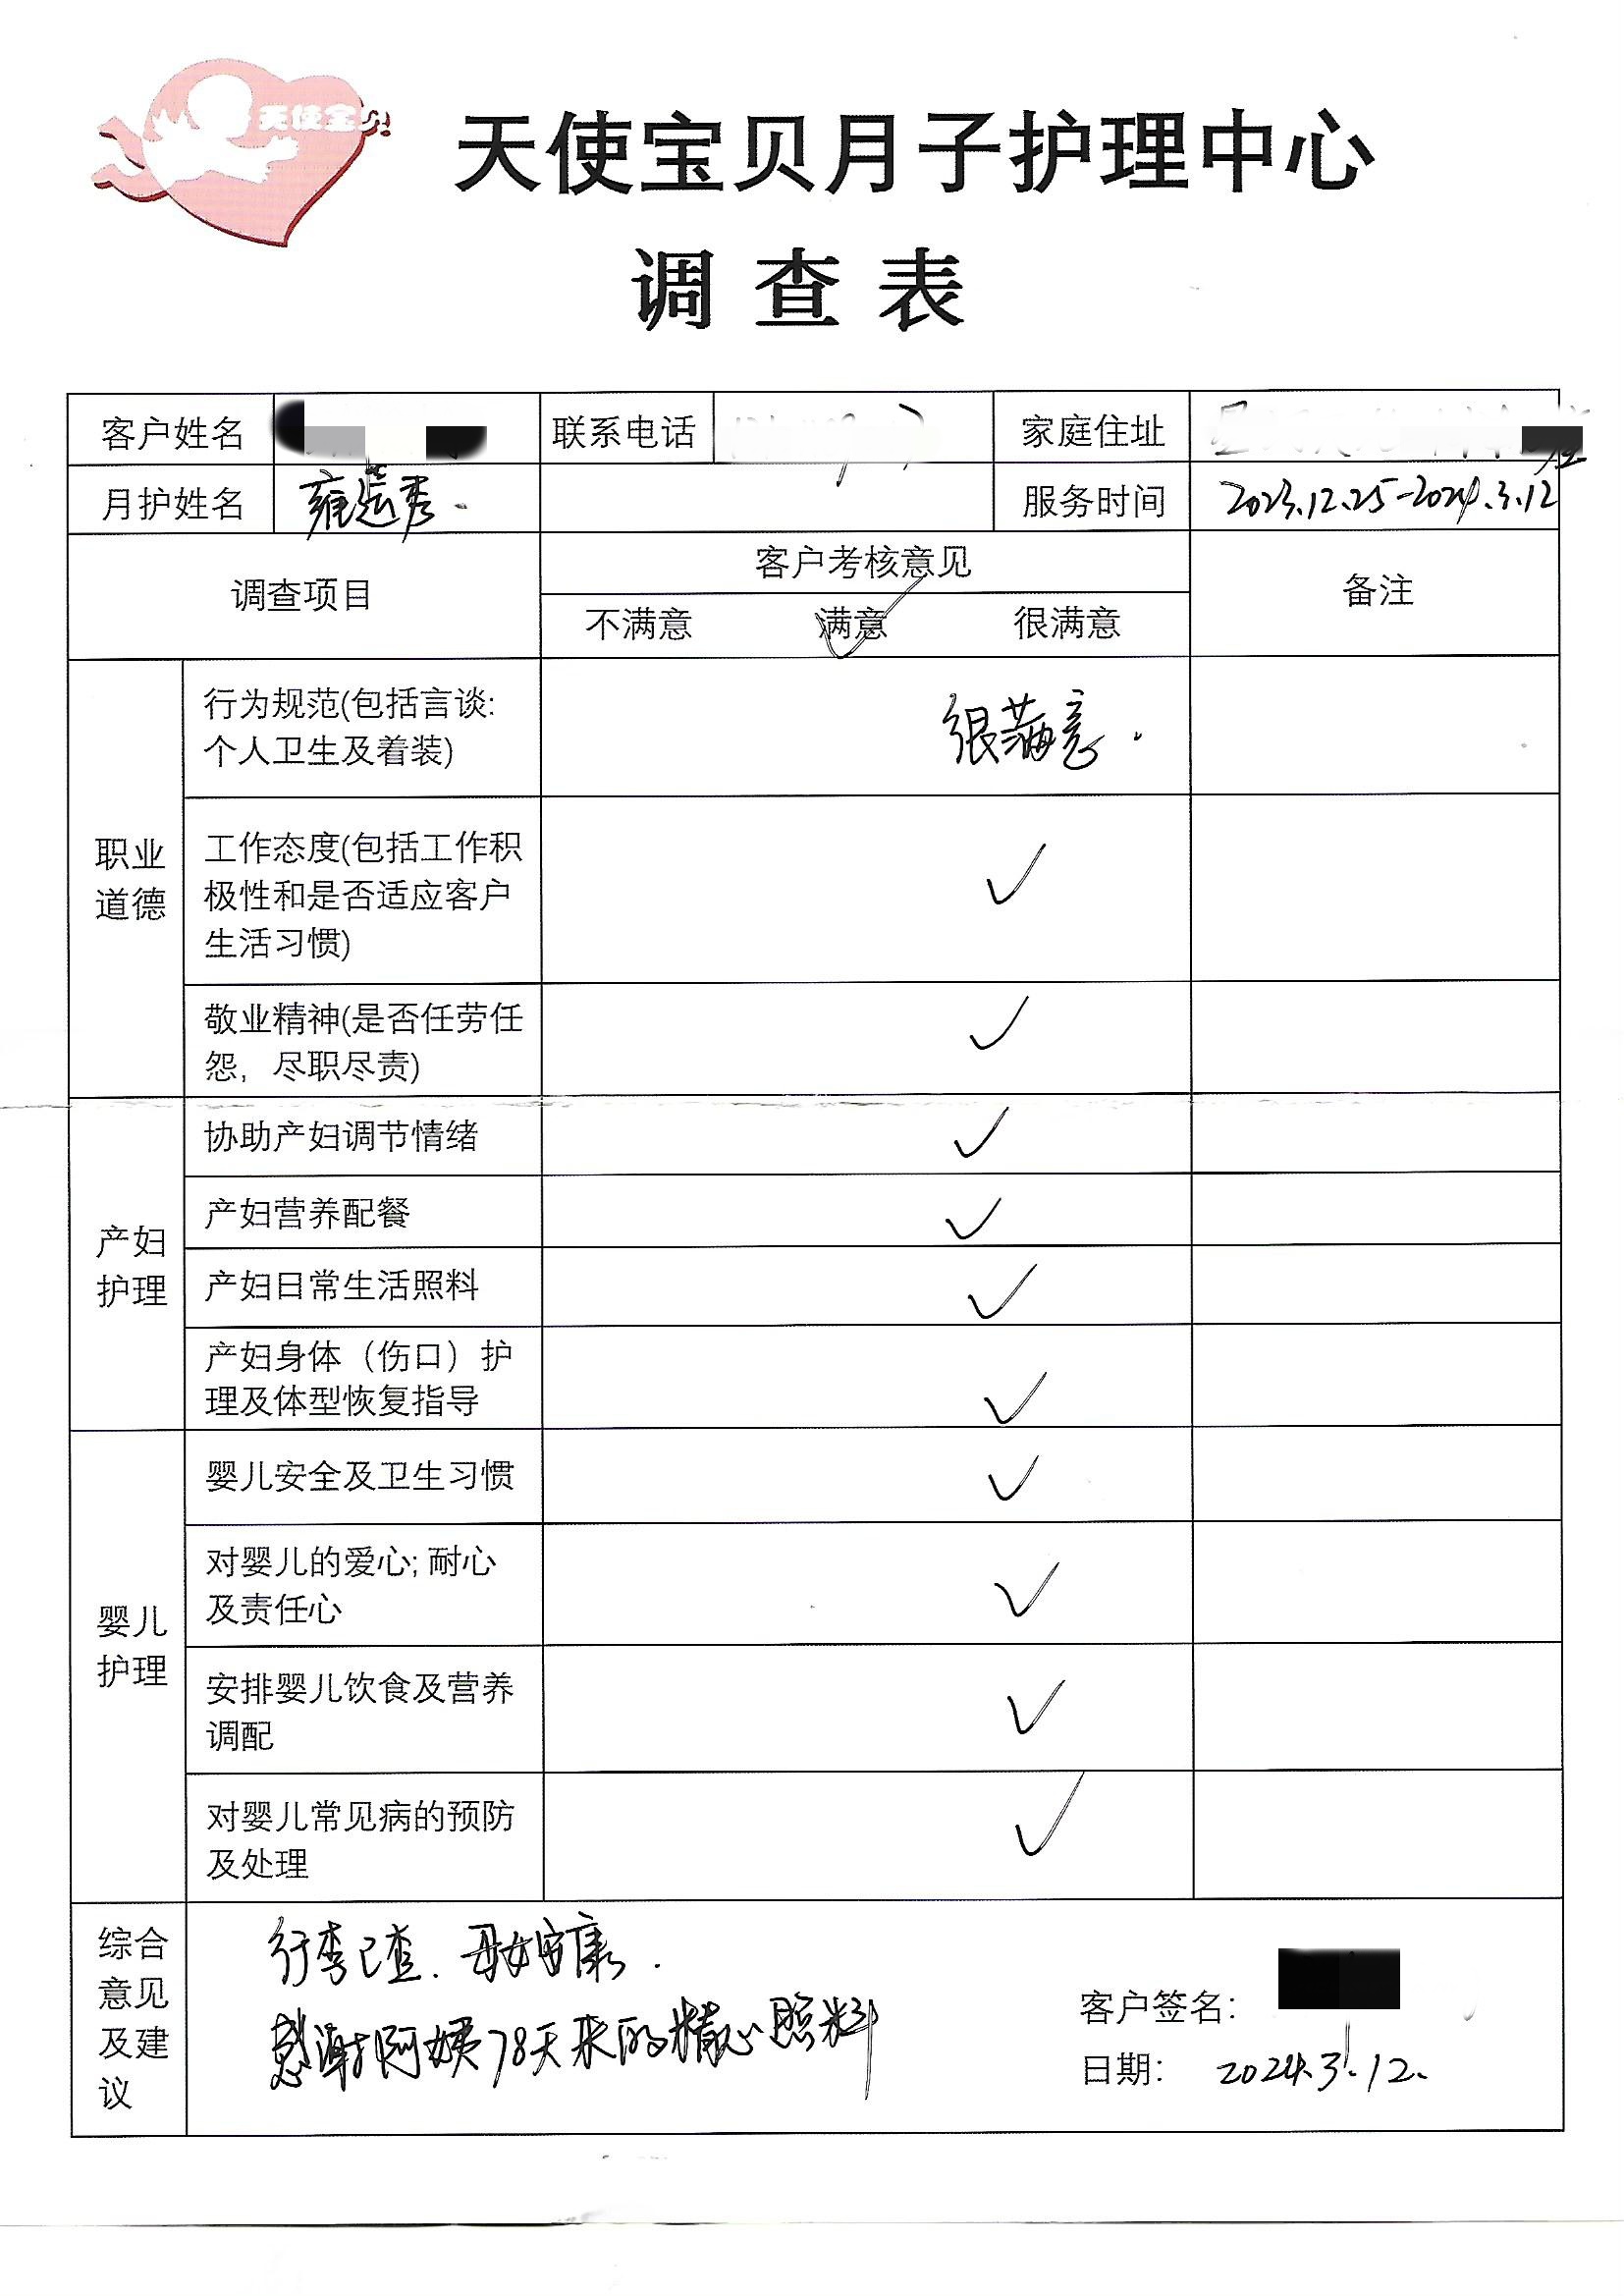 天使宝贝
天使宝贝月子护理中心
调查表
客户姓名 联系电话 家庭住址
月护姓名 雍 秀 服务时间 2023.12.25-2024.3.12
调查项目 客户考核意见 备注
不满意 满意 很满意
职业道德
行为规范(包括言谈:
个人卫生及着装)
很满意.
工作态度(包括工作积
极性和是否适应客户
生活习惯)
✓
敬业精神(是否任劳任
怨，尽职尽责)
✓
产妇护理
协助产妇调节情绪 ✓
产妇营养配餐 ✓
产妇日常生活照料 ✓
产妇身体（伤口）护
理及体型恢复指导
✓
婴儿护理
婴儿安全及卫生习惯 ✓
对婴儿的爱心; 耐心
及责任心
✓
安排婴儿饮食及营养
调配
✓
对婴儿常见病的预防
及处理
✓
综合意见及建议
行李已查. 母女安康.
感谢阿姨78天来的精心照料
客户签名:
日期: 2024.3.12.